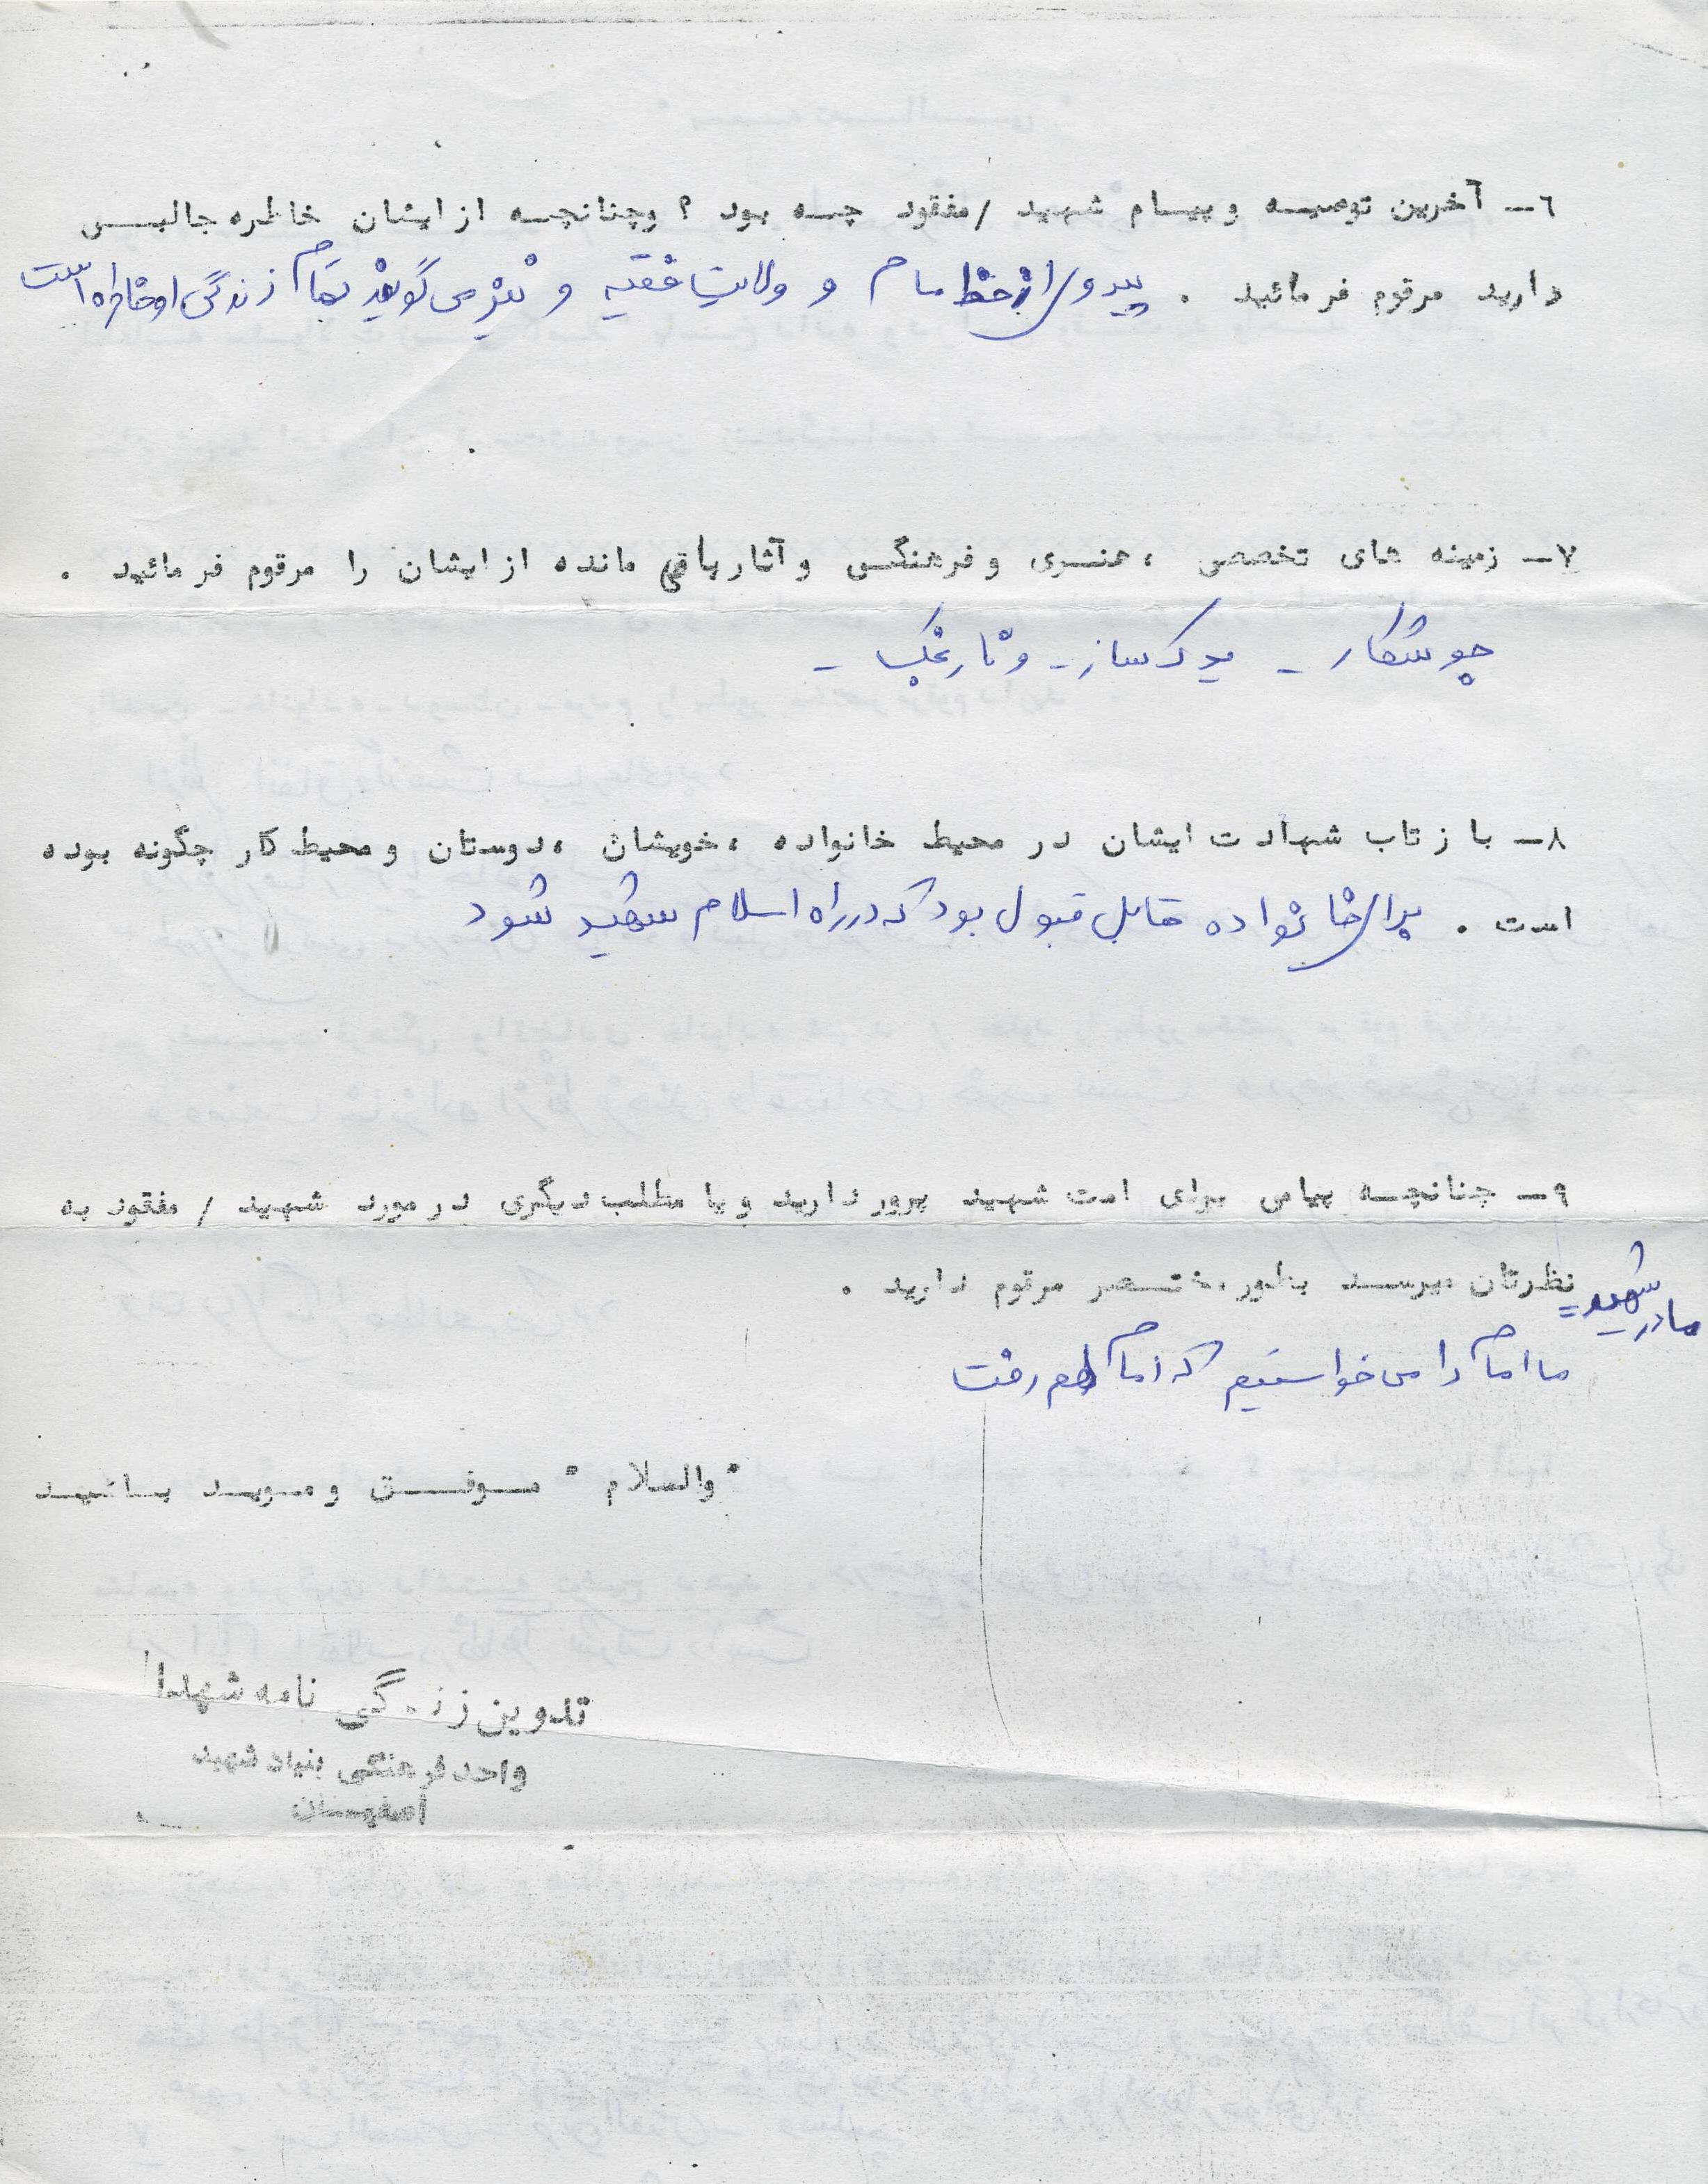 ٦ــ آخرین توصیــه و پیــام شهید / مفقود چــه بود ؟ وچنانچــه از ایشان خاطره جالبــی
دارید مرقوم فرمائید . پیروی از خط امام و ولایت فقیه و نیز می گویند تمام زندگی او خاطره است
٧ــ زمینه های تخصصی ، هنــری و فرهنگــی و آثار باقی مانده از ایشان را مرقوم فرمائید .
جوشکار ــ یدک ساز ــ و نارنجک ــ
٨ــ باز تاب شهادت ایشان در محیط خانواده ، خویشان ، دوستان و محیط کار چگونه بوده
است . برای خانواده قابل قبول بود که در راه اسلام شهید شود
٩ــ چنانچــه پیامی برای امت شهید پرور دارید و یا مطلب دیگری در مورد شهید / مفقود به
نظرتان میرســد بطور مختــصر مرقوم دارید .
مادر شهید =
ما امام را می خواستیم که امام هم رفت
" والسلام " مــوفــق و مــوید بــاشید
تدوین زندگی نامه شهدا
واحد فرهنگی بنیاد شهید
اصفهــان